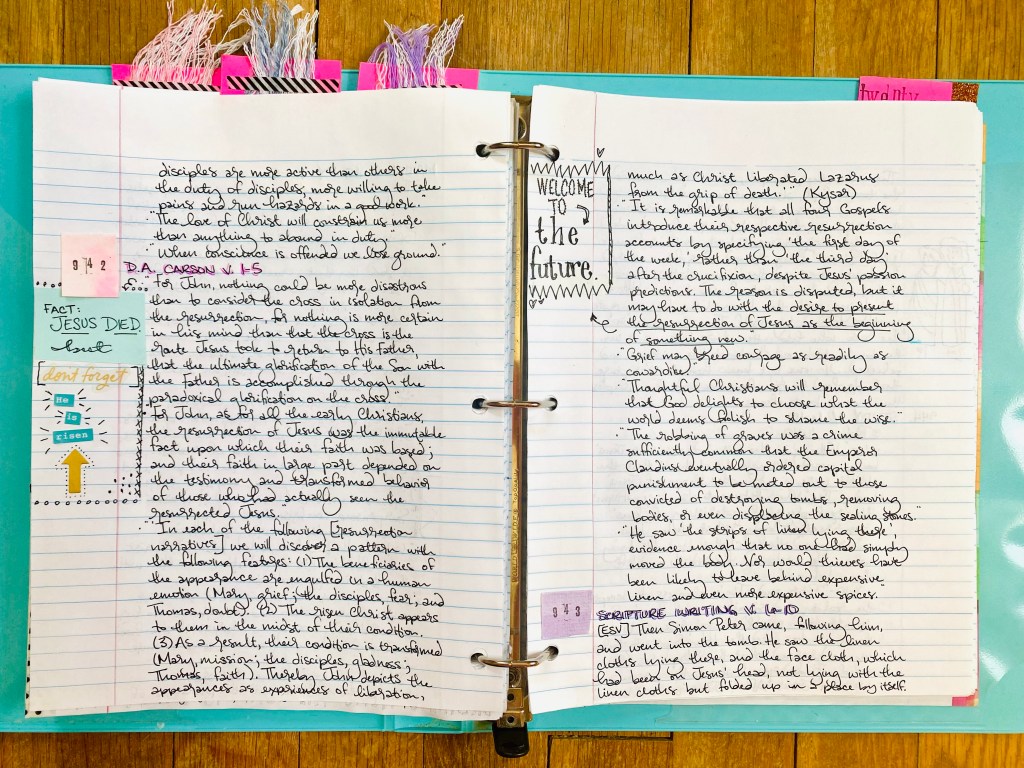 disciples are more active than others in
the duty of disciples; more willing to take
pains and run hazards in a good work."
"The love of Christ will constrain us more
than anything to abound in duty."
"When conscience is offended we lose ground."
942
D.A. CARSON V. 1-5
"For John, nothing could be more disastrous
than to consider the cross in isolation from
the resurrection, for nothing is more certain
in his mind than that the cross is the
route Jesus took to return to His father,
that the ultimate glorification of the Son with
the Father is accomplished through the
paradoxical glorification on the cross."
"For John, as for all the early Christians,
the resurrection of Jesus was the immutable
fact upon which their faith was based;
and their faith in large part depended on
the testimony and transformed behavior
of those who had actually seen the
resurrected Jesus."
"In each of the following [resurrection
narratives] we will discover a pattern with
the following features: (1) The beneficiaries of
the appearance are engulfed in a human
emotion (Mary, grief; the disciples, fear; and
Thomas, doubt). (2) The risen Christ appears
to them in the midst of their condition.
(3) As a result, their condition is transformed
(Mary, mission; the disciples, gladness;
Thomas, faith). Thereby John depicts the
appearances as experiences of liberation,
FACT:
JESUS DIED
but
don't forget
He
is
risen
twenty
WELCOME
TO
the
future.
much as Christ liberated Lazarus
from the grip of death.'" (Kysar)
"It is remarkable that all four Gospels
introduce their respective resurrection
accounts by specifying 'the first day of
the week,' rather than 'the third day'
after the crucifixion, despite Jesus' passion
predictions. The reason is disputed, but it
may have to do with the desire to present
the resurrection of Jesus as the beginning
of something new."
"Grief may breed courage as readily as
cowardice."
"Thoughtful Christians will remember
that God delights to choose what the
world deems foolish to shame the wise."
"The robbing of graves was a crime
sufficiently common that the Emperor
Claudius eventually ordered capital
punishment to be meted out to those
convicted of destroying tombs, removing
bodies, or even displacing the sealing stones."
"He saw 'the strips of linen lying there',
evidence enough that no one had simply
moved the body. Nor would thieves have
been likely to leave behind expensive
linen and even more expensive spices.
943
SCRIPTURE WRITING V. 6-10
[ESV] Then Simon Peter came, following him,
and went into the tomb. He saw the linen
cloths lying there, and the face cloth, which
had been on Jesus' head, not lying with the
linen cloths but folded up in a place by itself.